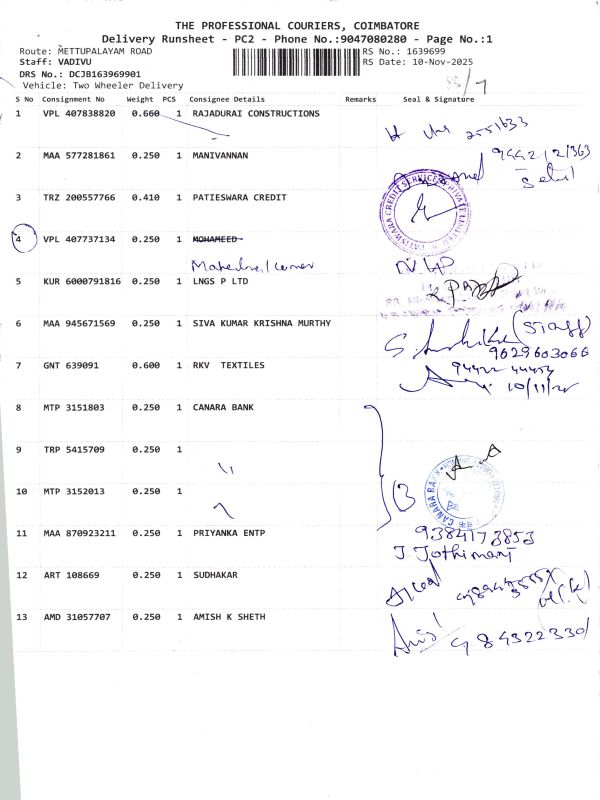 THE PROFESSIONAL COURIERS, COIMBATORE
Delivery Runsheet - PC2 - Phone No.:9047080280 - Page No.:1
Route: METTUPALAYAM ROAD RS No.: 1639699
Staff: VADIVU RS Date: 10-Nov-2025
DRS No.: DCJB163969901
Vehicle: Two Wheeler Delivery
S No Consignment No Weight PCS Consignee Details Remarks Seal & Signature
1 VPL 407838820 0.660 1 RAJADURAI CONSTRUCTIONS
2551633
2 MAA 577281861 0.250 1 MANIVANNAN
3 TRZ 200557766 0.410 1 PATIESWARA CREDIT
PATISWARA CREDIT SERVICES PRIVATE LIMITED
4 VPL 407737134 0.250 1 MOHAMEED
5 KUR 6000791816 0.250 1 LNGS P LTD
6 MAA 945671569 0.250 1 SIVA KUMAR KRISHNA MURTHY
(Staff)
9629603066
7 GNT 639091 0.600 1 RKV TEXTILES
10/11/25
8 MTP 3151803 0.250 1 CANARA BANK
9 TRP 5415709 0.250 1 "
10 MTP 3152013 0.250 1
3
CANARA BANK
11 MAA 870923211 0.250 1 PRIYANKA ENTP
9384173853
J Jothimani
12 ART 108669 0.250 1 SUDHAKAR
13 AMD 31057707 0.250 1 AMISH K SHETH
9843223301